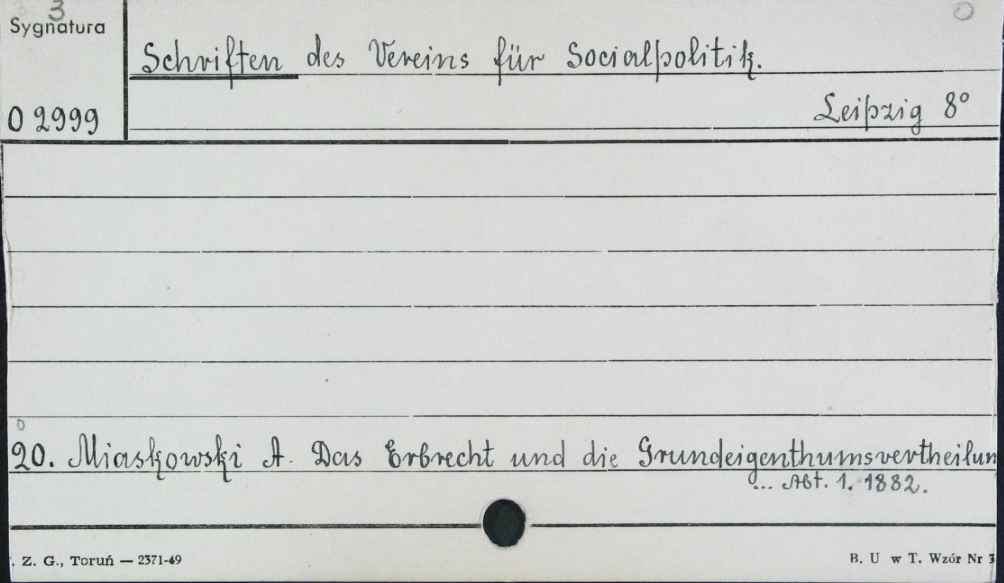 3
Sygnatura
Schriften des Vereins für Socialpolitik.
O 2999
Leipzig 8°
20. Miaskowski A. Das Erbrecht und die Grundeigenthumsvertheilun
... Abt. 1. 1882.
. Z. G., Toruń — 2371-49
B. U w T. Wzór Nr 3